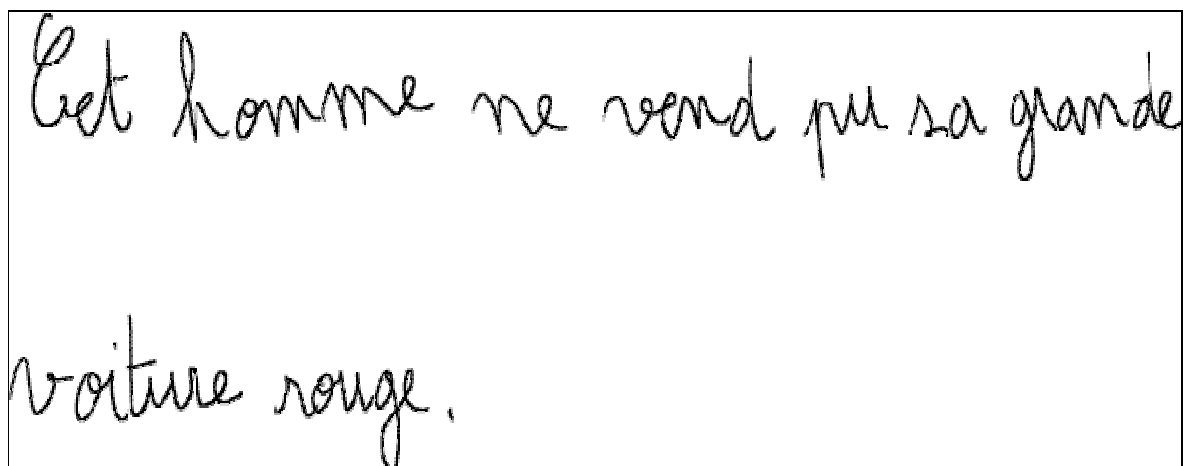 Cet homme ne vend pu sa grande
voiture rouge.